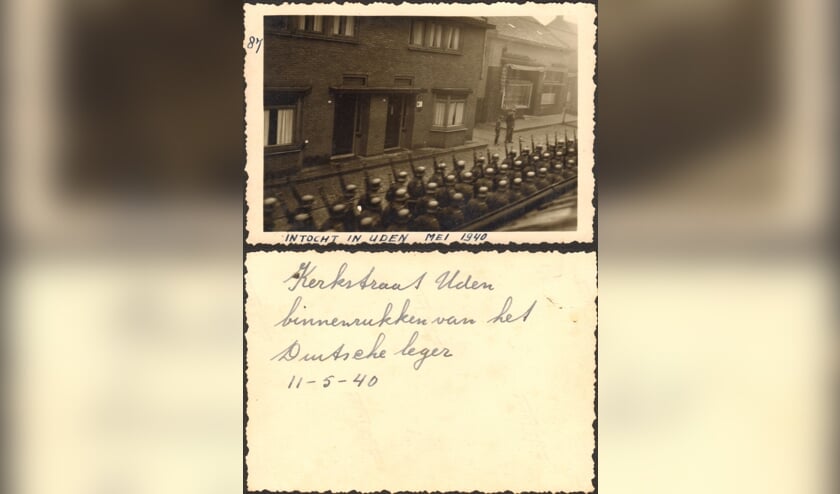 87
INTOCHT IN UDEN MEI 1940
Kerkstraat Uden
binnenrukken van het
Duitsche leger
11-5-40